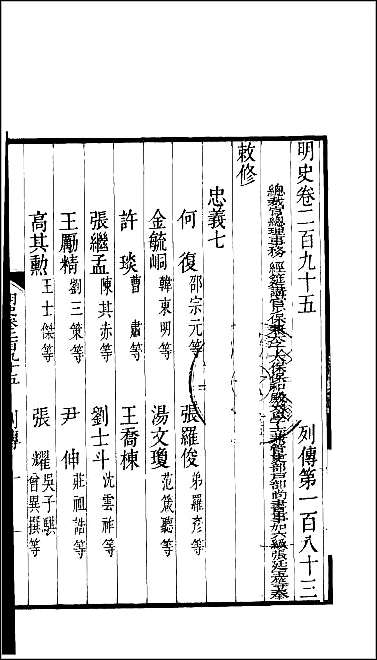 明史卷二百九十五 列傳第一百八十三
總裁官總理事務 經筵講官少保兼太子太保保和殿大學士兼管吏部戶部尚書事加六級張廷玉等奉
敕修
忠義七
何復 邵宗元等 張羅俊 弟羅彥等
金毓峒 韓東明等 湯文瓊 范箴聽等
許琰 曹肅等 王喬棟
張繼孟 陳其赤等 劉士斗 沈雲祚等
王勵精 劉三策等 尹伸 莊祖誥等
高其勳 王士傑等 張耀 吳子騏 曾異撰等